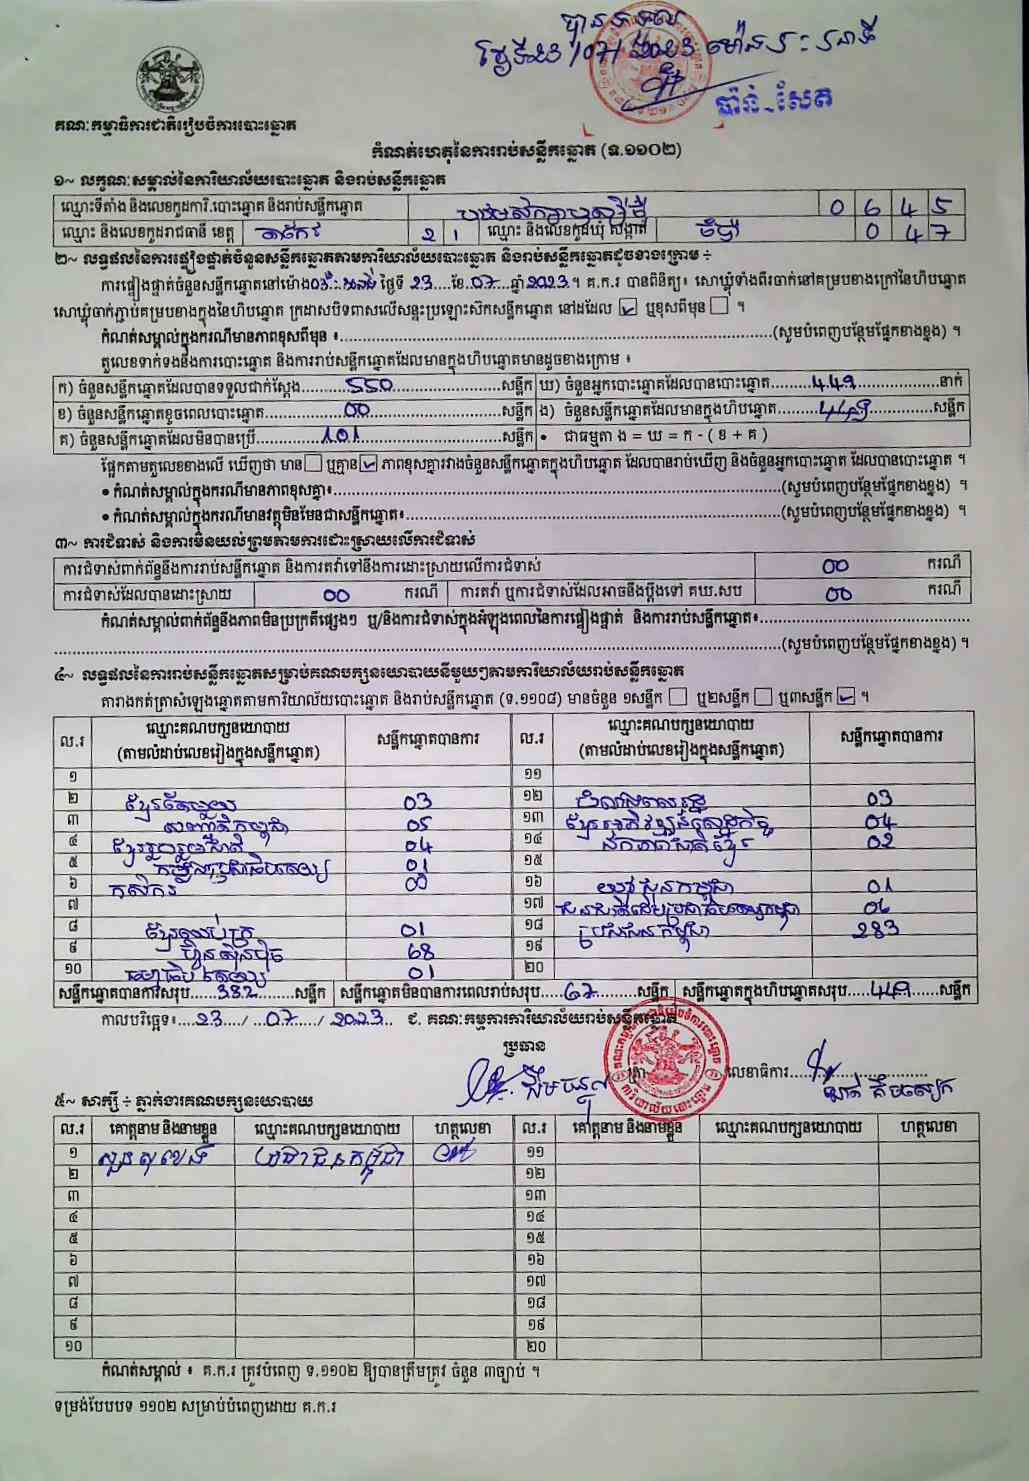 បានទទួល
ថ្ងៃទី23/07/2023 ម៉ោង
គណៈកម្មាធិការជាតិរៀបចំការបោះឆ្នោត
កំណត់ហេតុនៃការរាប់សន្លឹកឆ្នោត (ទ.១១០២)
១~ លក្ខណៈសម្គាល់នៃការិយាល័យបោះឆ្នោត និងរាប់សន្លឹកឆ្នោត
ឈ្មោះទីតាំង និងលេខកូដការិ.បោះឆ្នោត និងរាប់សន្លឹកឆ្នោត 0 6 4 5
ឈ្មោះ និងលេខកូដរាជធានី ខេត្ត តាកែវ 2 1 ឈ្មោះ និងលេខកូដឃុំ សង្កាត់ 0 4 7
២~ លទ្ធផលនៃការផ្ទៀងផ្ទាត់ចំនួនសន្លឹកឆ្នោតតាមការិយាល័យបោះឆ្នោត និងរាប់សន្លឹកឆ្នោតដូចខាងក្រោម ÷
ការផ្ទៀងផ្ទាត់ចំនួនសន្លឹកឆ្នោតនៅម៉ោង03: ថ្ងៃទី 23....ខែ.07....ឆ្នាំ.2023.។ គ.ក.រ បានពិនិត្យ៖ សោឃ្លុំទាំងពីរចាក់នៅគម្របខាងក្រៅនៃហិបឆ្នោត
សោឃ្លុំចាក់ភ្ជាប់គម្របខាងក្នុងនៃហិបឆ្នោត ក្រដាសបិទពាសលើសន្ទះប្រឡោះស៊កសន្លឹកឆ្នោត នៅដដែល ☑ ឬខុសពីមុន ☐ ។
កំណត់សម្គាល់ក្នុងករណីមានភាពខុសពីមុន ៖........(សូមបំពេញបន្ថែមផ្នែកខាងខ្នង) ។
តួលេខទាក់ទងនឹងការបោះឆ្នោត និងការរាប់សន្លឹកឆ្នោតដែលមានក្នុងហិបឆ្នោតមានដូចខាងក្រោម ៖
ក) ចំនួនសន្លឹកឆ្នោតដែលបានទទួលជាក់ស្តែង........550........សន្លឹក ឃ) ចំនួនអ្នកបោះឆ្នោតដែលបានបោះឆ្នោត........449........នាក់
ខ) ចំនួនសន្លឹកឆ្នោតខូចពេលបោះឆ្នោត........00........សន្លឹក ង) ចំនួនសន្លឹកឆ្នោតដែលមានក្នុងហិបឆ្នោត........449........សន្លឹក
គ) ចំនួនសន្លឹកឆ្នោតដែលមិនបានប្រើ........101........សន្លឹក • ជាធម្មតា ង = ឃ = ក - ( ខ + គ )
ផ្អែកតាមតួលេខខាងលើ ឃើញថា មាន ☐ ឬគ្មាន ☑ ភាពខុសគ្នារវាងចំនួនសន្លឹកឆ្នោតក្នុងហិបឆ្នោត ដែលបានរាប់ឃើញ និងចំនួនអ្នកបោះឆ្នោត ដែលបានបោះឆ្នោត ។
• កំណត់សម្គាល់ក្នុងករណីមានភាពខុសគ្នា៖........(សូមបំពេញបន្ថែមផ្នែកខាងខ្នង) ។
• កំណត់សម្គាល់ក្នុងករណីមានវត្ថុមិនមែនជាសន្លឹកឆ្នោត៖........(សូមបំពេញបន្ថែមផ្នែកខាងខ្នង) ។
៣~ ការជំទាស់ និងការមិនយល់ព្រមតាមការដោះស្រាយលើការជំទាស់
ការជំទាស់ពាក់ព័ន្ធនឹងការរាប់សន្លឹកឆ្នោត និងការតវ៉ាទៅនឹងការដោះស្រាយលើការជំទាស់ 00 ករណី
ការជំទាស់ដែលបានដោះស្រាយ 00 ករណី ការតវ៉ា ឬការជំទាស់ដែលអាចនឹងប្តឹងទៅ គឃ.សប 00 ករណី
កំណត់សម្គាល់ពាក់ព័ន្ធនឹងភាពមិនប្រក្រតីផ្សេងៗ ឬ/និងការជំទាស់ក្នុងអំឡុងពេលនៃការផ្ទៀងផ្ទាត់ និងការរាប់សន្លឹកឆ្នោត៖........
........(សូមបំពេញបន្ថែមផ្នែកខាងខ្នង) ។
៤~ លទ្ធផលនៃការរាប់សន្លឹកឆ្នោតសម្រាប់គណបក្សនយោបាយនីមួយៗតាមការិយាល័យរាប់សន្លឹកឆ្នោត
តារាងកត់ត្រាសំឡេងឆ្នោតតាមការិយាល័យបោះឆ្នោត និងរាប់សន្លឹកឆ្នោត (ទ.១១០៨) មានចំនួន ១សន្លឹក ☐ ឬ២សន្លឹក ☐ ឬ៣សន្លឹក ☑ ។
ល.រ ឈ្មោះគណបក្សនយោបាយ (តាមលំដាប់លេខរៀងក្នុងសន្លឹកឆ្នោត) សន្លឹកឆ្នោតបានការ ល.រ ឈ្មោះគណបក្សនយោបាយ (តាមលំដាប់លេខរៀងក្នុងសន្លឹកឆ្នោត) សន្លឹកឆ្នោតបានការ
១ ១១
២ ខ្មែរតែមួយ 03 ១២ 03
៣ សញ្ជាតិកម្ពុជា 05 ១៣ ខ្មែរអភិវឌ្ឍន៍សេដ្ឋកិច្ច 04
៤ ខ្មែររួបរួមជាតិ 04 ១៤ ឯកភាពជាតិខ្មែរ 02
៥ កម្លាំងប្រជាធិបតេយ្យ 01 ១៥
៦ កសិករ 00 ១៦ យុវជនកម្ពុជា 01
៧ ១៧ 06
៨ ខ្មែរឈប់ក្រ 01 ១៨ ប្រជាជនកម្ពុជា 283
៩ ហ៊្វុនស៊ិនប៉ិច 68 ១៩
១០ 01 ២០
សន្លឹកឆ្នោតបានការសរុប......382........សន្លឹក សន្លឹកឆ្នោតមិនបានការពេលរាប់សរុប.....67........សន្លឹក សន្លឹកឆ្នោតក្នុងហិបឆ្នោតសរុប.....449......សន្លឹក
កាលបរិច្ឆេទ៖....23..../...07...../ 2023.. ជ. គណៈកម្មការការិយាល័យរាប់សន្លឹកឆ្នោត
ប្រធាន
ត្រា លេខាធិការ........
៥~ សាក្សី ÷ ភ្នាក់ងារគណបក្សនយោបាយ
ល.រ គោត្តនាម និងនាមខ្លួន ឈ្មោះគណបក្សនយោបាយ ហត្ថលេខា ល.រ គោត្តនាម និងនាមខ្លួន ឈ្មោះគណបក្សនយោបាយ ហត្ថលេខា
១ ប្រជាជនកម្ពុជា ១១
២ ១២
៣ ១៣
៤ ១៤
៥ ១៥
៦ ១៦
៧ ១៧
៨ ១៨
៩ ១៩
១០ ២០
កំណត់សម្គាល់ ៖ គ.ក.រ ត្រូវបំពេញ ទ.១១០២ ឱ្យបានត្រឹមត្រូវ ចំនួន ៣ច្បាប់ ។
ទម្រង់បែបបទ ១១០២ សម្រាប់បំពេញដោយ គ.ក.រ